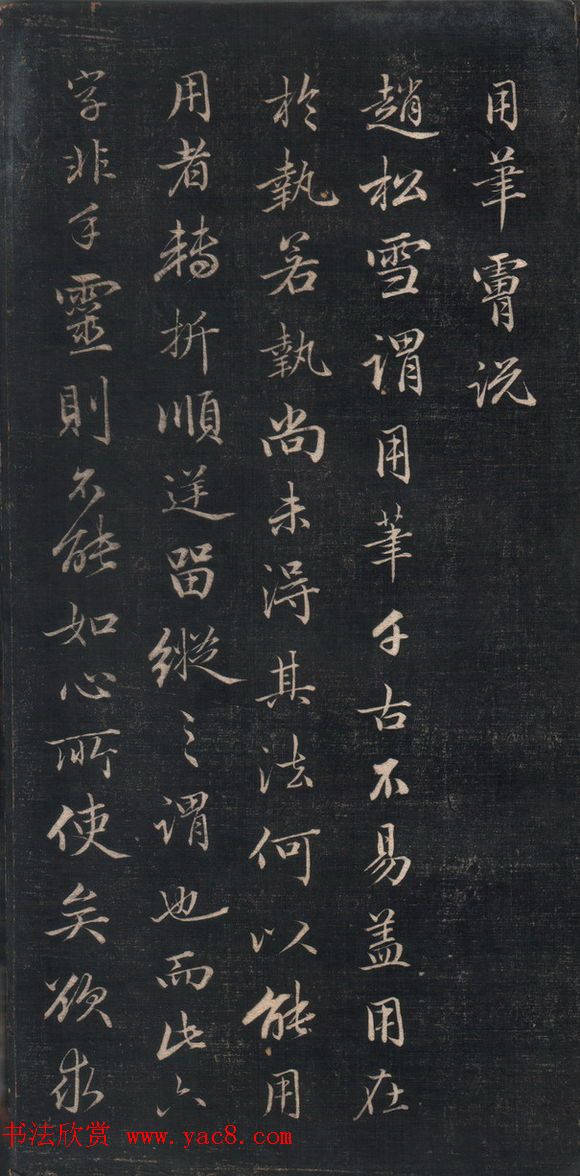 用筆膚说
趙松雪謂用筆千古不易盖用在
於執若執尚未得其法何以能用
用者轉折順逆留縱之謂也而此六
字非手靈則不能如心所使矣欲求
书法欣赏 www.yac8.com